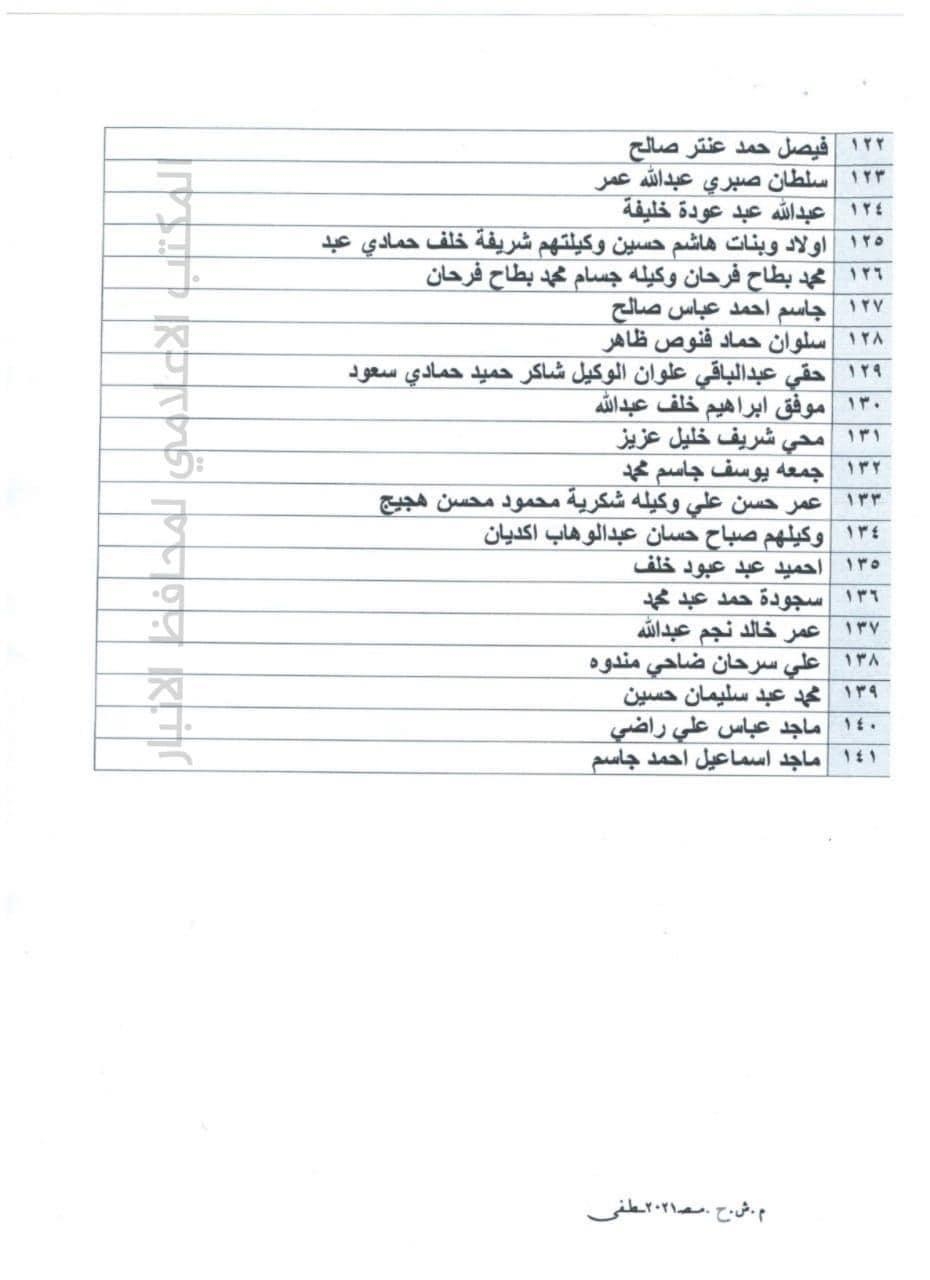 ١٢٢ فيصل حمد عنتر صالح
١٢٣ سلطان صبري عبدالله عمر
١٢٤ عبدالله عبد عودة خليفة
١٢٥ اولاد وبنات هاشم حسين وكيلتهم شريفة خلف حمادي عبد
١٢٦ محمد بطاح فرحان وكيله جسام محمد بطاح فرحان
١٢٧ جاسم احمد عباس صالح
١٢٨ سلوان حماد فنوص ظاهر
١٢٩ حقي عبدالباقي علوان الوكيل شاكر حميد حمادي سعود
١٣٠ موفق ابراهيم خلف عبدالله
١٣١ محي شريف خليل عزيز
١٣٢ جمعه يوسف جاسم محمد
١٣٣ عمر حسن علي وكيله شكرية محمود محسن هجيج
١٣٤ وكيلهم صباح حسان عبدالوهاب اكديان
١٣٥ احميد عبد عبود خلف
١٣٦ سجودة حمد عبد محمد
١٣٧ عمر خالد نجم عبدالله
١٣٨ علي سرحان ضاحي مندوه
١٣٩ محمد عبد سليمان حسين
١٤٠ ماجد عباس علي راضي
١٤١ ماجد اسماعيل احمد جاسم
المكتب الاعلامي لمحافظ الانبار
م.ش.ح.مصـ٢٠٢١ـطفى